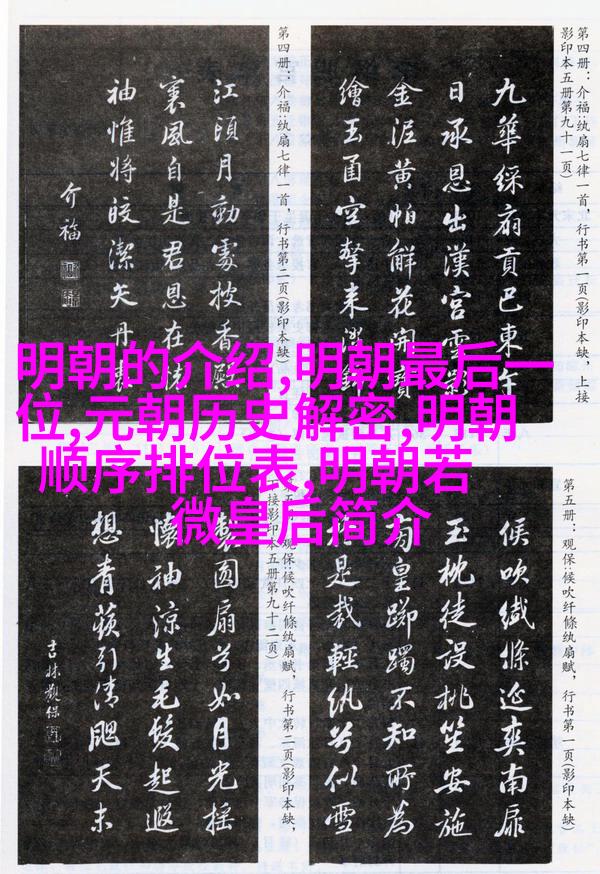 第四册：介福:纨扇七律一首，行书第一页(影印本缺，上接
影印本五册第九十一页)
九華綵扇貢巴東午
日承恩出漢宮雲影
金泥黃帕鮮花開寶
繪玉函空擎来
第四册：介福:纨扇七律一首，行书第二页(影印本缺)
江頭月動處披香殿
裏風自是君恩在
袖惟將皎潔矢丹
介福
明朝的介绍,明朝最后一
位,元朝历史解密,明朝
顺序排位表,明朝若
微皇后简介
第五册：观保:候吹纤絛纨扇赋，行书第一页(影印本缺)
候吹纖絛延爽南扉
玉枕徒設桃笙安施
皇躑躅不知所為
是裁輕紈兮似雪
观保:候吹纤絛纨扇赋，行书第二页(影印本缺，
下接影印本五册第九十二页)
製圓扇兮如月光搖
懷袖涼生毛髮起遐
想青蘋引清颸天末
吉林觀保